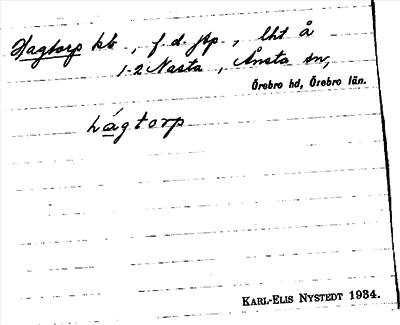 Hagtorp kb, f.d. jtp., lht å
1-2 Nasta, Ånsta sn,
Örebro hd, Örebro län.
hágtorp
KARL-ELIS NYSTEDT 1934.